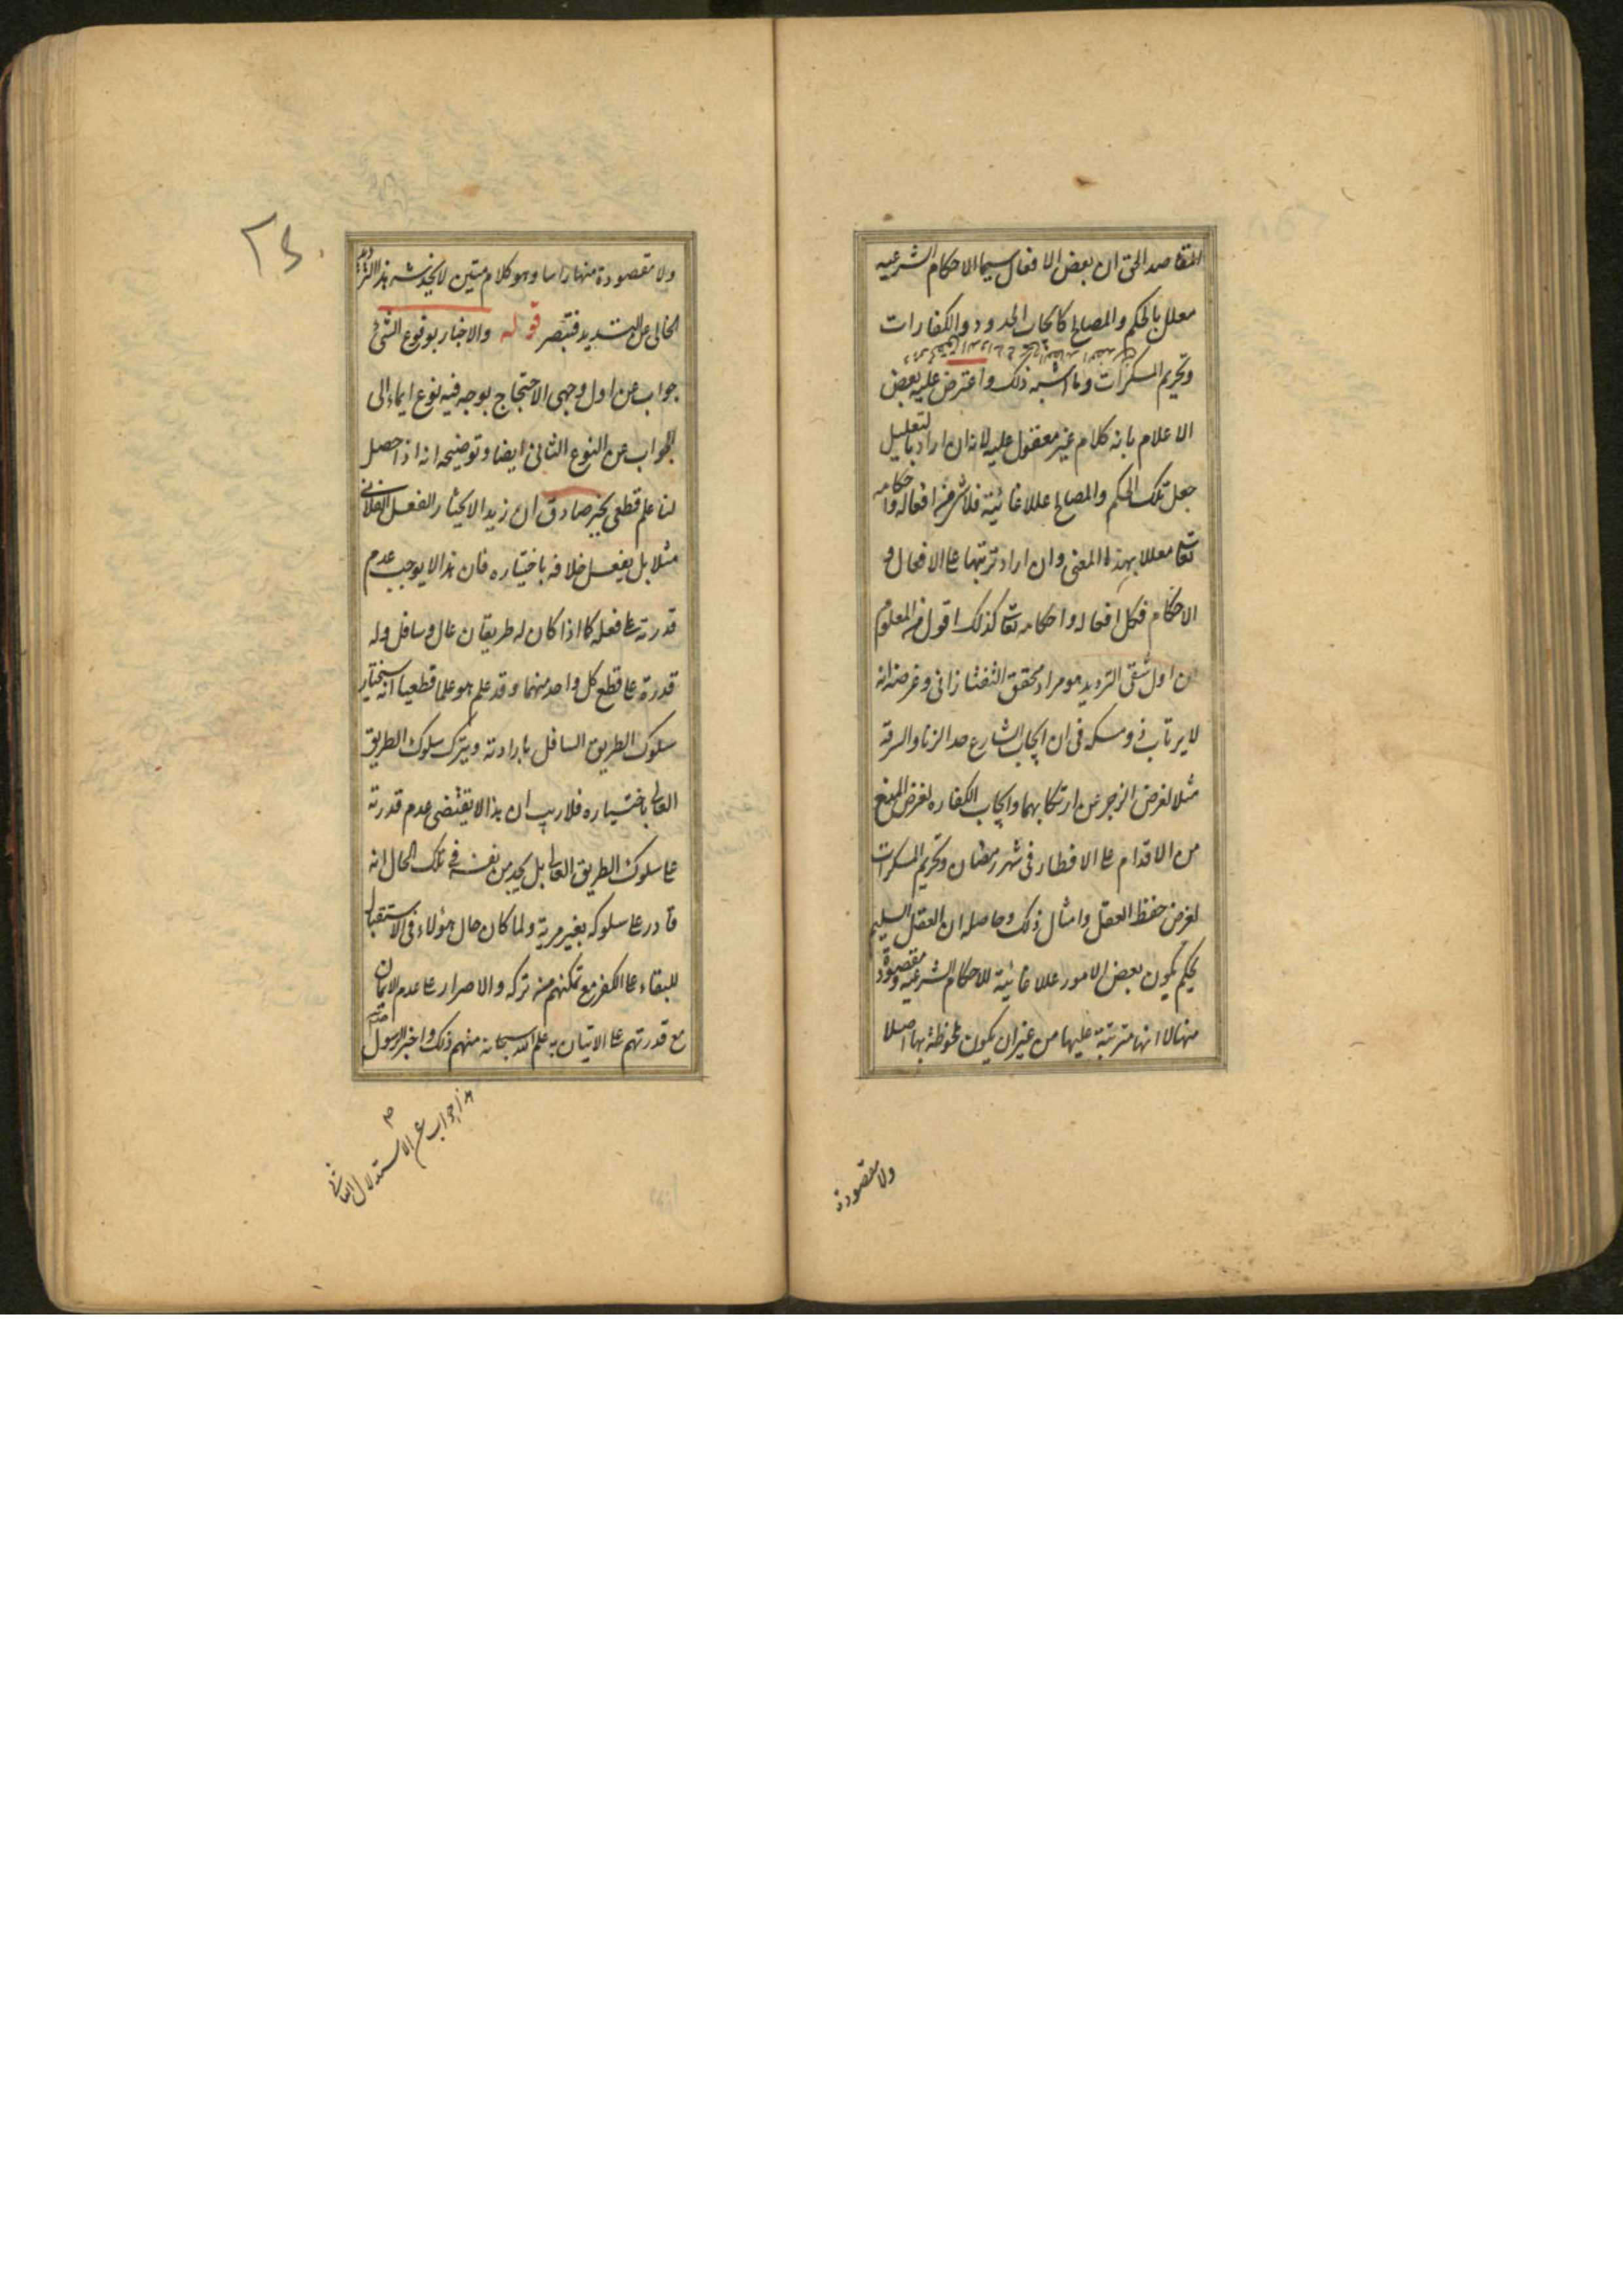 المقاصد الحق ان بعض الافعال سيما الاحكام الشرعيه
معلل بالحكم والمصالح كايجاب الحدود والكفارات
وتحريم المسكرات وما اشبه ذلك واعترض عليه بعض
الاعلام بانه كلام غير معقول عليه لانه ان اراد بالتعليل
جعل تلك الحكم والمصالح عللا غائية فلا شئ من افعاله واحكامه
تعالى معللا بهذا المعنى وان اراد ترتبها على الافعال و
الاحكام فكل افعاله واحكامه تعالى كذلك اقول من المعلوم
ان اول شقى الترديد هو مراد محقق التفتازانى وغرضه انه
لا يرتاب ذو مسكه فى ان ايجاب الشارع حد الزنا والسرقة
مثلا لغرض الزجر عن ارتكابهما وايجاب الكفاره لغرض المنع
من الاقدام على الافطار فى شهر رمضان وتحريم المسكرات
لغرض حفظ العقل وامثال ذلك وحاصله ان العقل السليم
يحكم بكون بعض الامور عللا غائية للاحكام الشرعيه ومقصودة
منها لا انها مترتبة عليها من غير ان يكون ملحوظة بها اصلا
ولا مقصودة
ولا مقصودة منها راسا وهو كلام متين لا يخدشه هذا الترديد
الخالى عن التسديد فتبصر قوله والاخبار بوقوع الشئ
جواب عن اول وجهى الاحتجاج بوجه فيه نوع ايماء الى
الجواب عن النوع الثانى ايضا وتوضيحه انه اذا حصل
لنا علم قطعى بخبر صادق ان زيدا لا يختار الفعل الفلانى
مثلا بل يفعل خلافه باختياره فان هذا لا يوجب عدم
قدرته على فعله كما اذا كان له طريقان عال وسافل وله
قدرة على قطع كل واحد منهما وقد علم هو علما قطعيا انه سيختار
سلوك الطريق السافل بارادته ويترك سلوك الطريق
العالى باختياره فلا ريب ان هذا لا يقتضى عدم قدرته
على سلوك الطريق العالى بل يجد من نفسه فى تلك الحال انه
قادر على سلوكه بغير مرية ولما كان حال هؤلاء فى الاستقبال
البقاء على الكفر مع تمكنهم من تركه والاصرار على عدم الايمان
مع قدرتهم على الاتيان به علم الله سبحانه منهم ذلك واخبر الرسول
هذا جواب عن الاستدلال الثانى